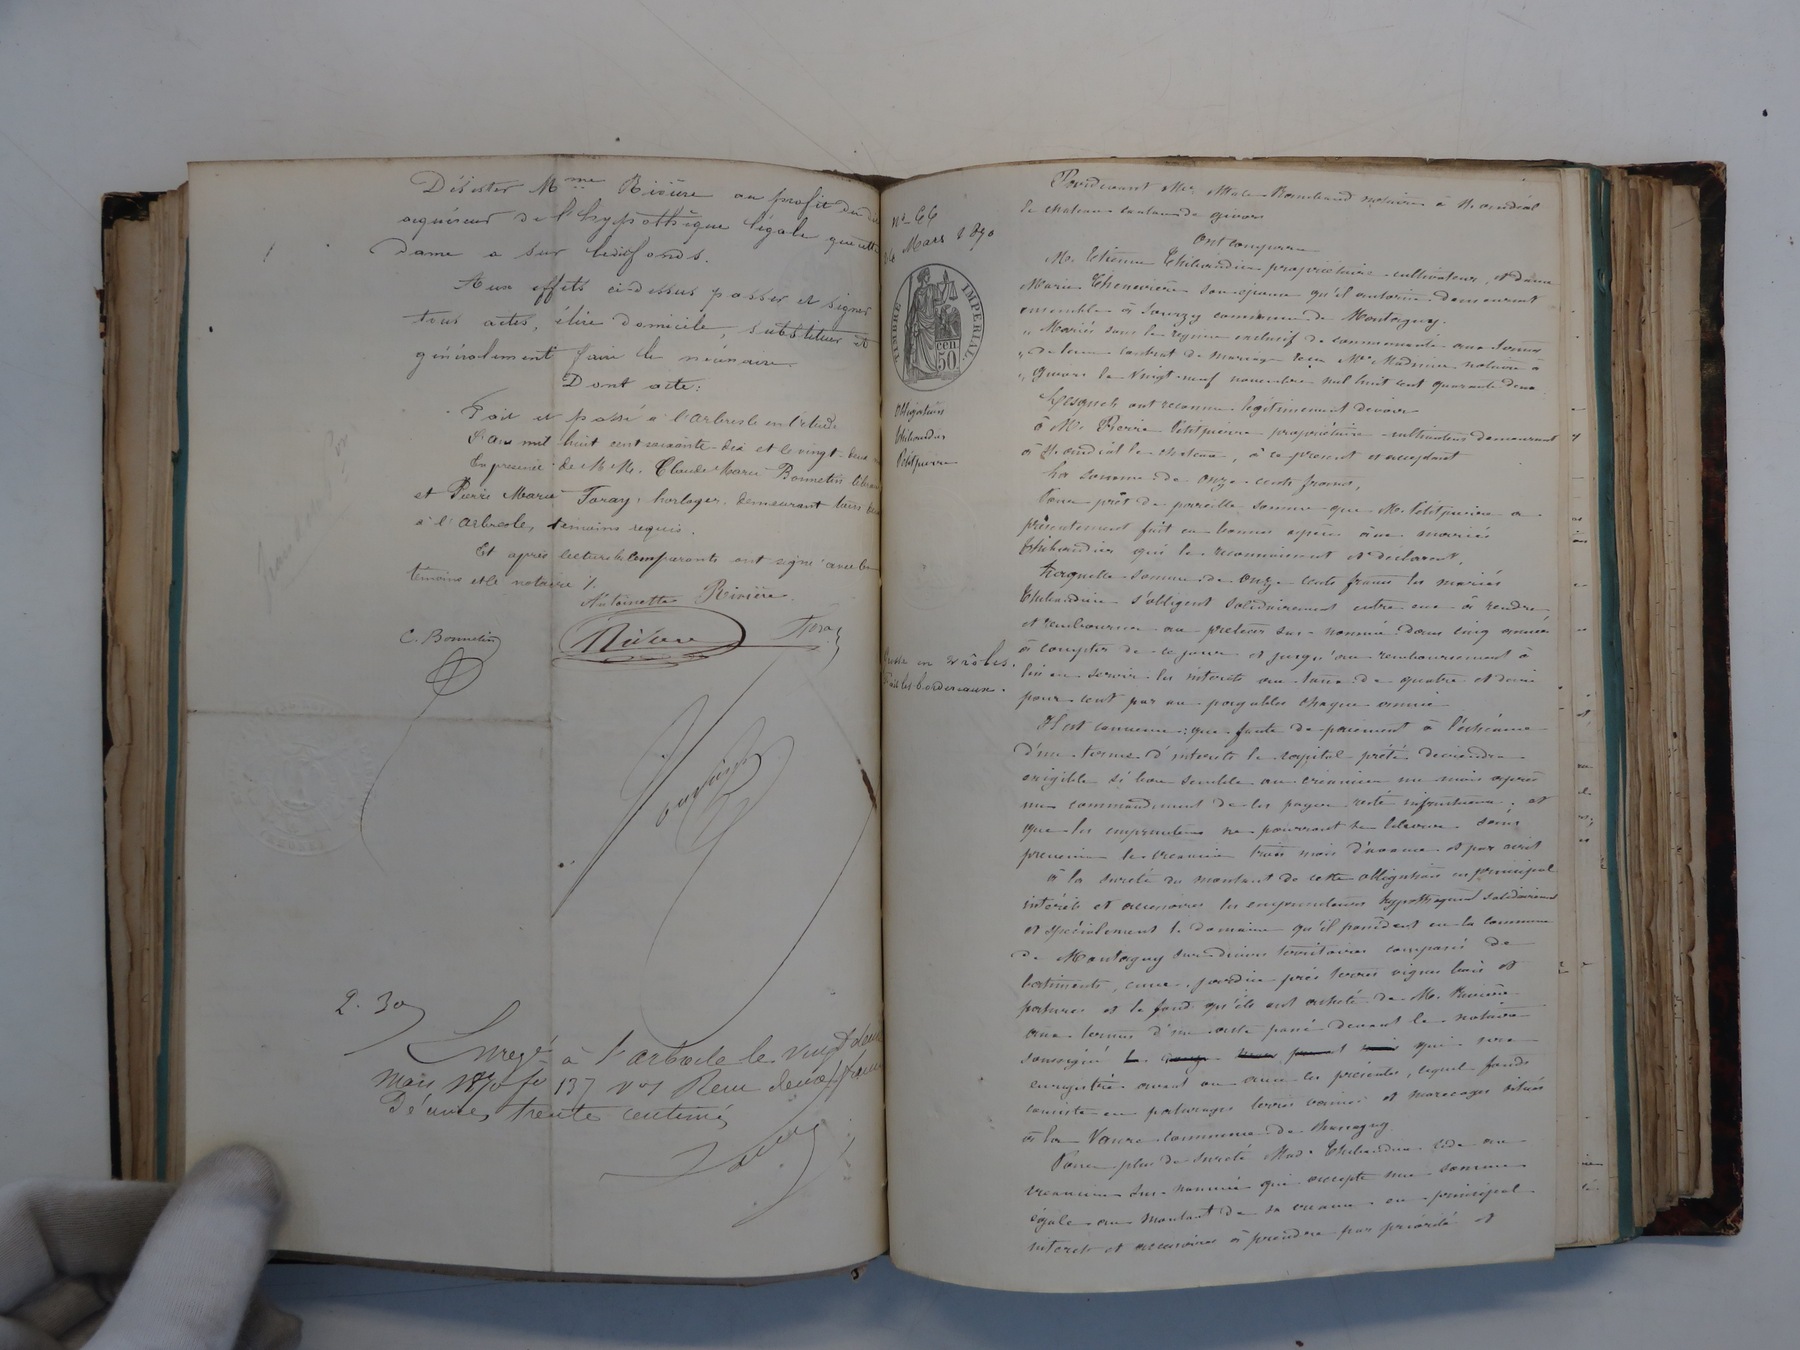 Désister Mme Rivière au profit du dit
acquéreur de l'hypothèque légale que cette
dame a sur lesdits fonds.
Aux effets ci-dessus passer et signer
tous actes, élire domicile, substituer et
généralement faire le nécessaire.
Dont acte:
Fait et passé à l'Arbresle en l'étude
L'an mil huit cent soixante-dix et le vingt-deux
En présence de M.M. Claude Marie Bonnetin
et Pierre Marie Foray, horloger, demeurant tous
à l'Arbresle, témoins requis.
Et après lecture les comparants ont signé avec les
témoins et le notaire /.
Antoinette Rivière
C. Bonnetin Rivière Foray
2.30
Enregé à l'arbresle le vingt deux
mars 1870 fo 137 Reçu deux francs
Décimes trente centimes
No 66
Mars 1870
TIMBRE IMPERIAL
50 cen.
Obligation
Thibaudier
Petitpierre
Grosse en rôles.
les bordereaux.
Pardevant Me notaire à St andéol
le chateau canton de givors
Ont comparu
M. Etienne Thibaudier propriétaire cultivateur, et dame
Marie Thenevière son épouse qu'il autorise demeurant
ensemble à Sourzy commune de Montagny.
Mariés sous le régime exclusif de communauté aux termes
de leur contrat de mariage reçu Me notaire à
Givors le vingt-neuf novembre mil huit cent quarante deux
Lesquels ont reconnu légitimement devoir
à Mr Pierre Petitpierre propriétaire cultivateur demeurant
à St andéol le chateau, à ce présent et acceptant
La somme de onze cents francs,
Pour prêt de pareille somme que M. Petitpierre a
présentement fait en bonnes espèces aux mariés
Thibaudier qui le reconnaissent et déclarent,
Laquelle somme de onze cents francs les mariés
Thibaudier s'obligent solidairement entre eux à rendre
et rembourser au prêteur sus-nommé dans cinq années
à compter de ce jour et jusqu'au remboursement à
lui en servir les intérêts au taux de quatre et demi
pour cent par an payables chaque année
Il est convenu: que faute de paiement à l'échéance
d'un terme d'intérêts le capital prêté deviendra
exigible si bon semble au créancier un mois après
un commandement de les payer resté infructueux; et
que les emprunteurs ne pourront se libérer sans
prévenir le créancier trois mois d'avance et par écrit
à la sûreté du montant de cette obligation en principal
intérêts et accessoires les emprunteurs hypothèquent solidairement
et spécialement le domaine qu'il possèdent en la commune
de Montagny sur divers territoires composés de
batiments, cour, jardin, prés terres vignes bois et
patures et le fond qu'ils ont acheté de M. Rivière
aux termes d'un acte passé devant le notaire
soussigné qui sera
enregistré avant ou avec les présentes, lequel fonds
consiste en paturages terres vernes et marecages situés
à la Vaure commune de Chassagny
Pour plus de sureté Made Thibaudier cède au
créancier sus-nommé qui accepte une somme
égale au montant de sa créance en principal
intérêts et accessoires à prendre par priorité et